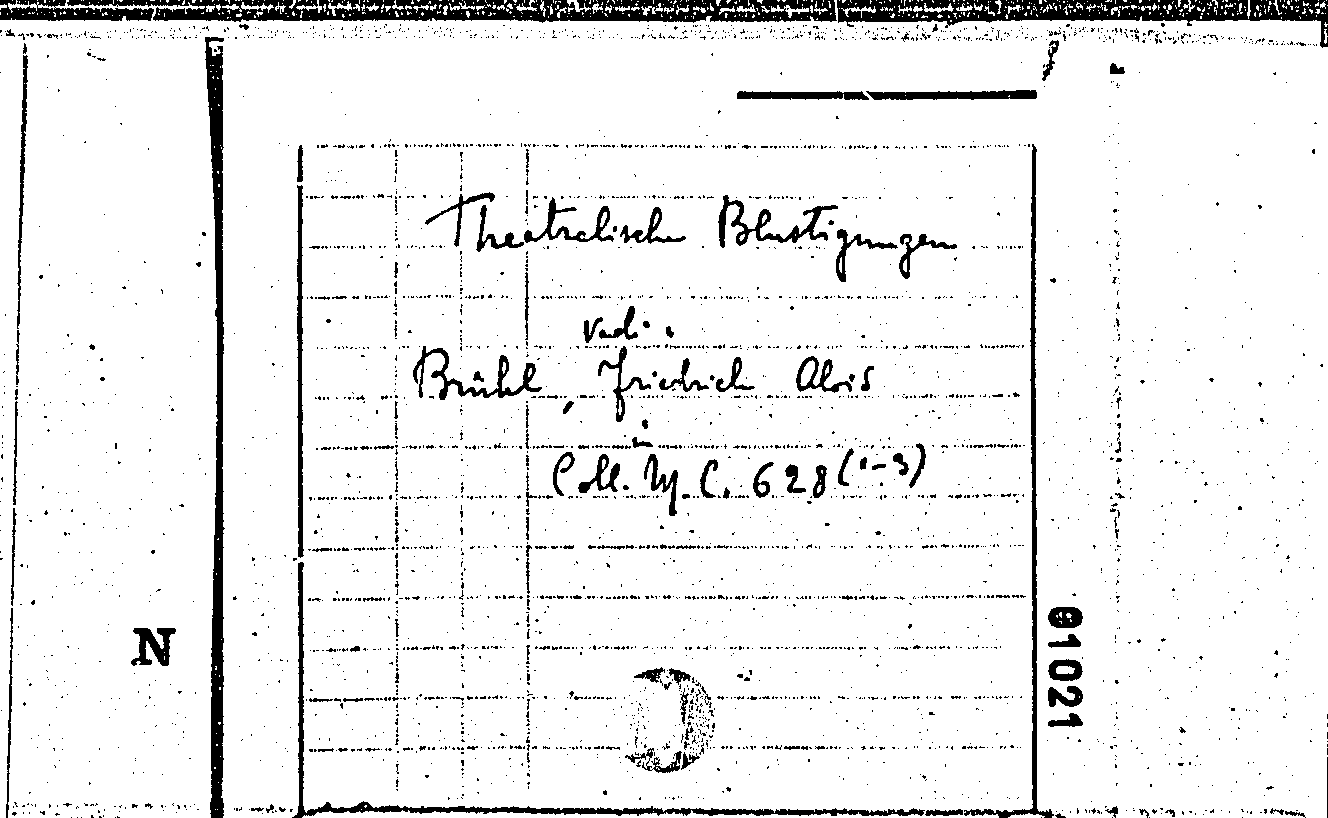 Theatralische Blustigungen
vedi
Brühl, Friedrich Alois
in
Coll. M. C. 628 (1-3)
N
01021